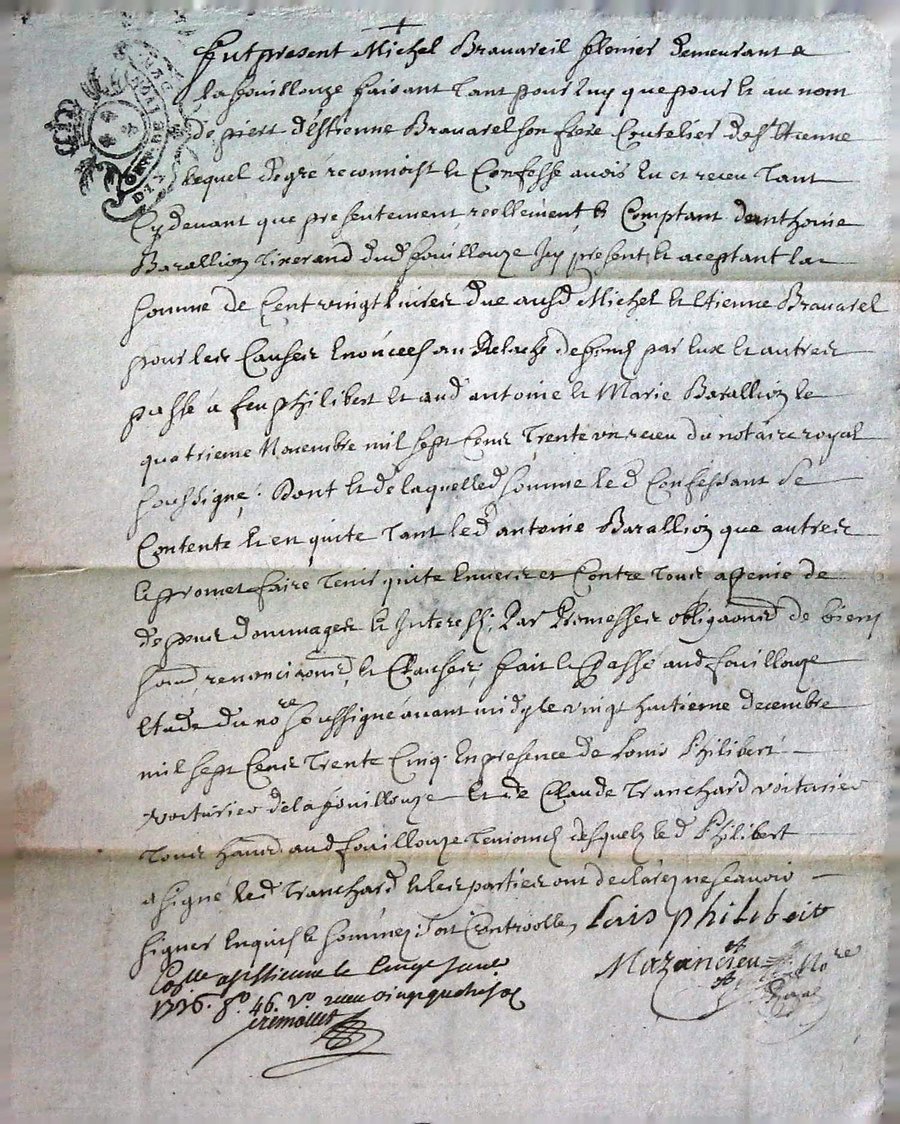 Fut present Michel Bravareil demeurant a
la fouillouze faisant tant pour luy que pour et au nom
d'Estienne Bravarel son frere Coutelier de St Etienne
lequel de gré reconnoist et Confesse avoir eu et receu tant
Cy devant que presentement reellement et Comptant danthoine
Barallion tixerand dud fouillouze Icy present et aceptant la
somme de Cent vingt livres due ausd Michel et Etienne Bravarel
pour les Causes enoncees au Relache de par eux et autres
passé a feu philibert et aud antoine et Marie Barallion le
quatrieme Novembre mil sept Cens Trente un receu du notaire royal
soussigné. Dont et de laquelled somme led Confessant se
Contente et en quite tant led antoine Barallion que autres
et promet faire tenir quite envers et Contre tous a penie de
depens dommages et Interests. Par Promesses obligaons de biens
soud, renonciaons, et Clauses; fait et Passé aud fouillouze
Etude du nore soussigné avant midy le vingt huitieme decembre
mil sept Cens Trente Cinq. En presence de Louis Philibert
voiturier de la fouillouze et de Claude Tranchard voiturier
tous aud fouillouze temoins desquels led Philibert
a signé led Tranchard et les parties ont declarez ne scavoir
signer enquis et sommez Soit Controollé, Louis philibeit
a st Etienne le
1736. fo. 46. vo receu
Mazandieu Nore
Royal